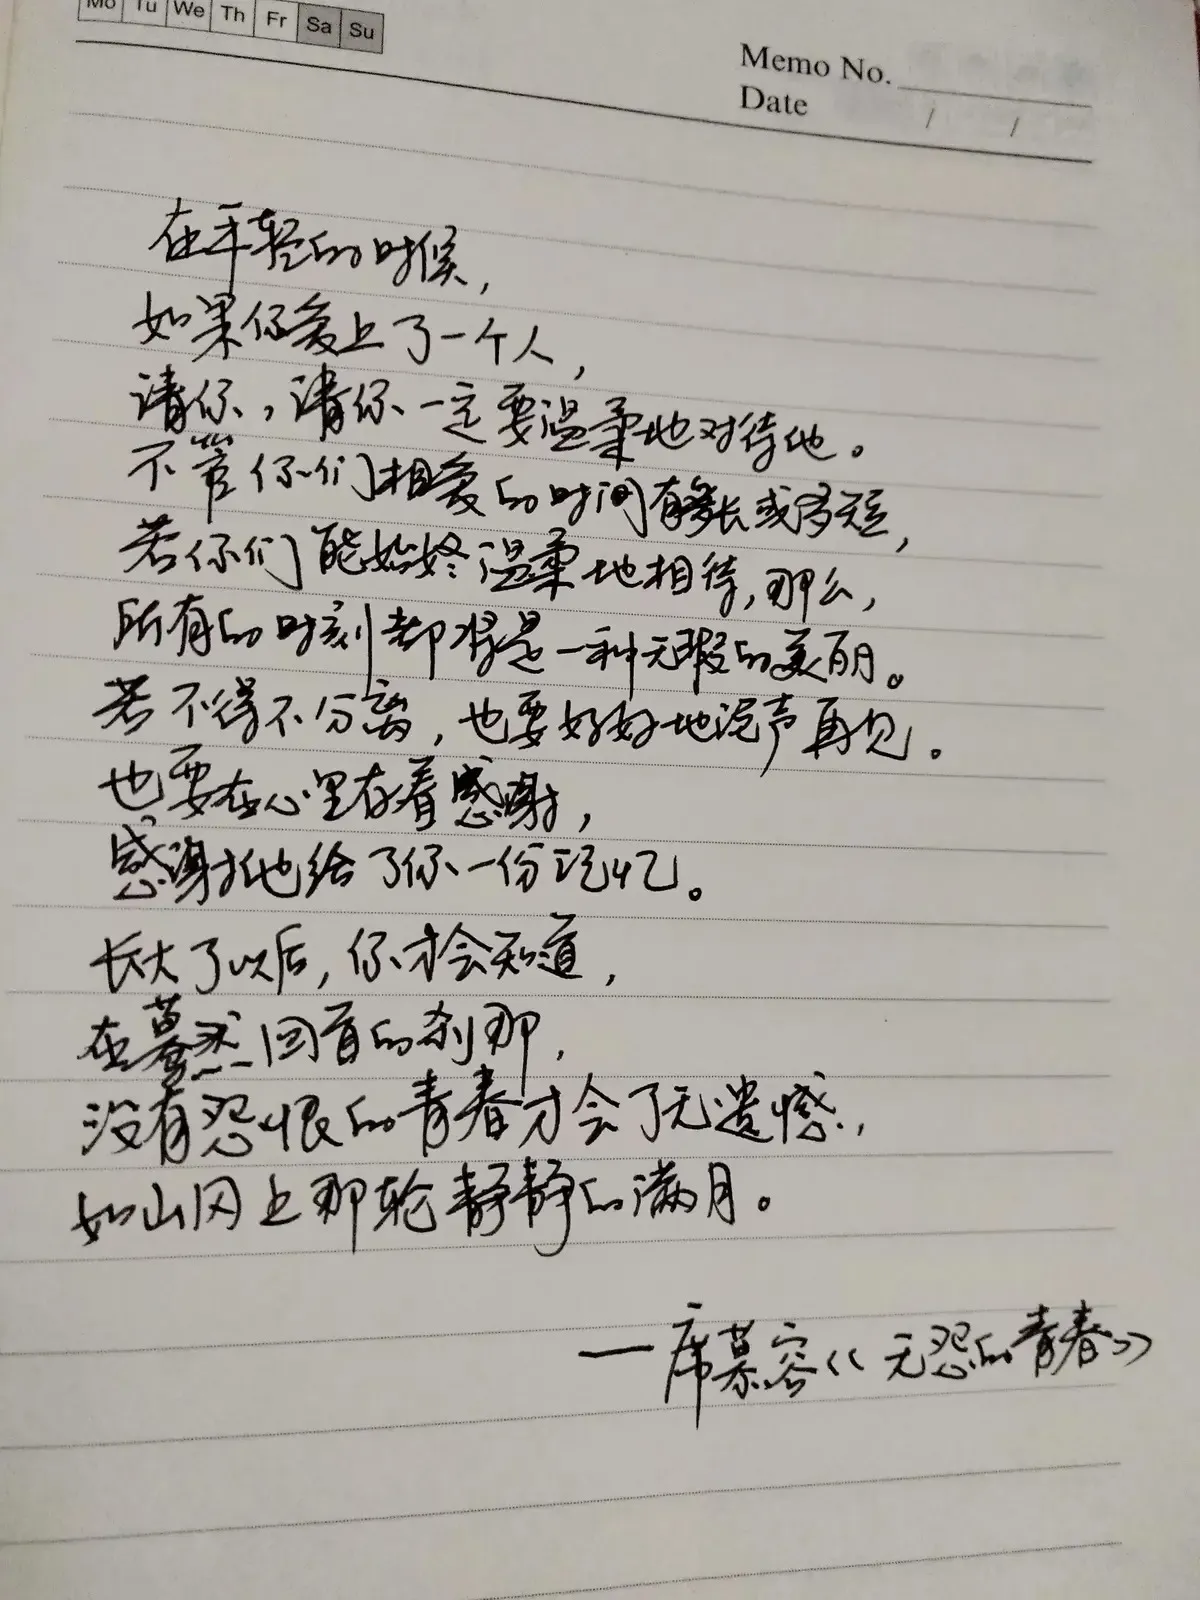 Mo Tu We Th Fr Sa Su
Memo No.
Date / /
在年轻的时候,
如果你爱上了一个人,
请你,请你一定要温柔地对待他。
不管你们相爱的时间有多长或多短,
若你们能始终温柔地相待,那么,
所有的时刻都将是一种无瑕的美丽。
若不得不分离,也要好好地说声再见。
也要在心里存着感谢,
感谢他给了你一份记忆。
长大了以后,你才会知道,
在蓦然回首的刹那,
没有怨恨的青春才会了无遗憾,
如山冈上那轮静静的满月。
——席慕容《无怨的青春》